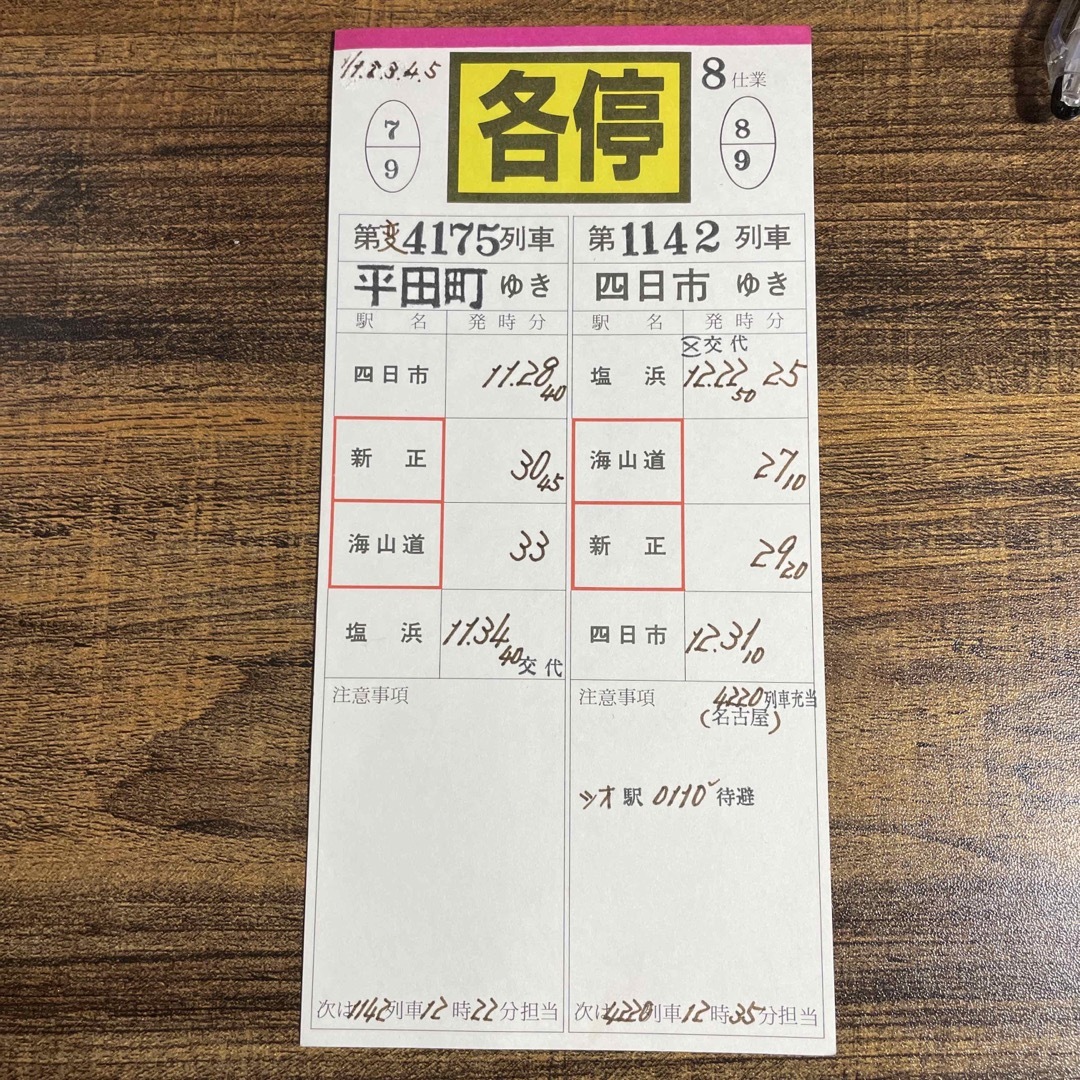 1/1.2.3.4.5
各停
8仕業
7
9
8
9
第変4175列車
平田町ゆき
駅名 発時分
四日市 11.28 40
新正 30 45
海山道 33
塩浜 11.34 40 交代
注意事項
次は1142列車12時22分担当
第1142列車
四日市ゆき
駅名 発時分
交代
塩浜 12.22 50 25
海山道 27 10
新正 29 20
四日市 12.31 10
注意事項 4220列車充当
(名古屋)
駅 0110 待避
次は4220列車12時35分担当